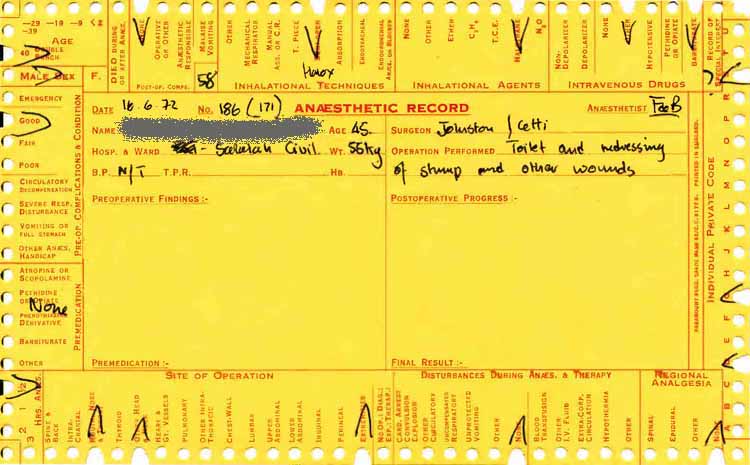 -29 -19 -9
-39
AGE
40 DOUBLE PUNCH
MALE SEX F.
DIED DURING OR AFTER ANÆS.
NONE
OPERATIVE OR OTHER
ANÆSTHETIC RESPONSIBLE
MALAISE VOMITING
OTHER
MECHANICAL RESPIRATOR
T. PIECE
ABSORPTION
NONE
OTHER
ETHER
C₂H₄
T.C.E.
HALOTHANE
N₂O
NON-DEPOLARIZER
DEPOLARIZER
NONE
OTHER
HYPOTENSIVE
PETHIDINE OR OPIATE
BARBITURATE
RECORD OF SPECIAL INTEREST
POST-OP. COMPS.
58
Halox
INHALATIONAL TECHNIQUES
INHALATIONAL AGENTS
INTRAVENOUS DRUGS
DATE 18.6.72 No. 186 (171) ANÆSTHETIC RECORD ANÆSTHETIST
NAME AGE 45 SURGEON Johnston / Cetti
HOSP. & WARD - Salalah Civil. WT. 55kg OPERATION PERFORMED Toilet and redressing
B.P. N/T T.P.R. HB. of stump and other wounds
PREOPERATIVE FINDINGS :- POSTOPERATIVE PROGRESS :-
PREMEDICATION :- FINAL RESULT :-
EMERGENCY
GOOD
FAIR
POOR
CIRCULATORY DECOMPENSATION
SEVERE RESP. DISTURBANCE
VOMITING OR FULL STOMACH
OTHER ANÆS. HANDICAP
PRE-OP. COMPLICATIONS & CONDITION
ATROPINE OR SCOPOLAMINE
PETHIDINE OR OPIATE
None
PHENOTHIAZINE DERIVATIVE
BARBITURATE
OTHER
PREMEDICATION
INDIVIDUAL PRIVATE CODE
PRINTED IN ENGLAND.
HRS. ANÆS.
3 2 1 ½
SITE OF OPERATION
DISTURBANCES DURING ANÆS. & THERAPY
REGIONAL ANALGESIA
SPINE & BACK
INTRA-CRANIAL
THYROID
OTHER HEAD
HEART & GT. VESSELS
PULMONARY
OTHER INTRA-THORACIC
CHEST-WALL
LUMBAR
UPPER ABDOMINAL
LOWER ABDOMINAL
INGUINAL
PERINEAL
EXTREMITIES
CARD. ARREST
CONVULSION
EXPLOSION
OTHER CIRCULATORY
UNCOMPENSATED RESPIRATORY
UNPROTECTED VOMITING
OTHER
BLOOD TRANSFUSION
OTHER I.V. FLUID
EXTRA-CORP. CIRCULATION
HYPOTHERMIA
OTHER
SPINAL
EPIDURAL
OTHER